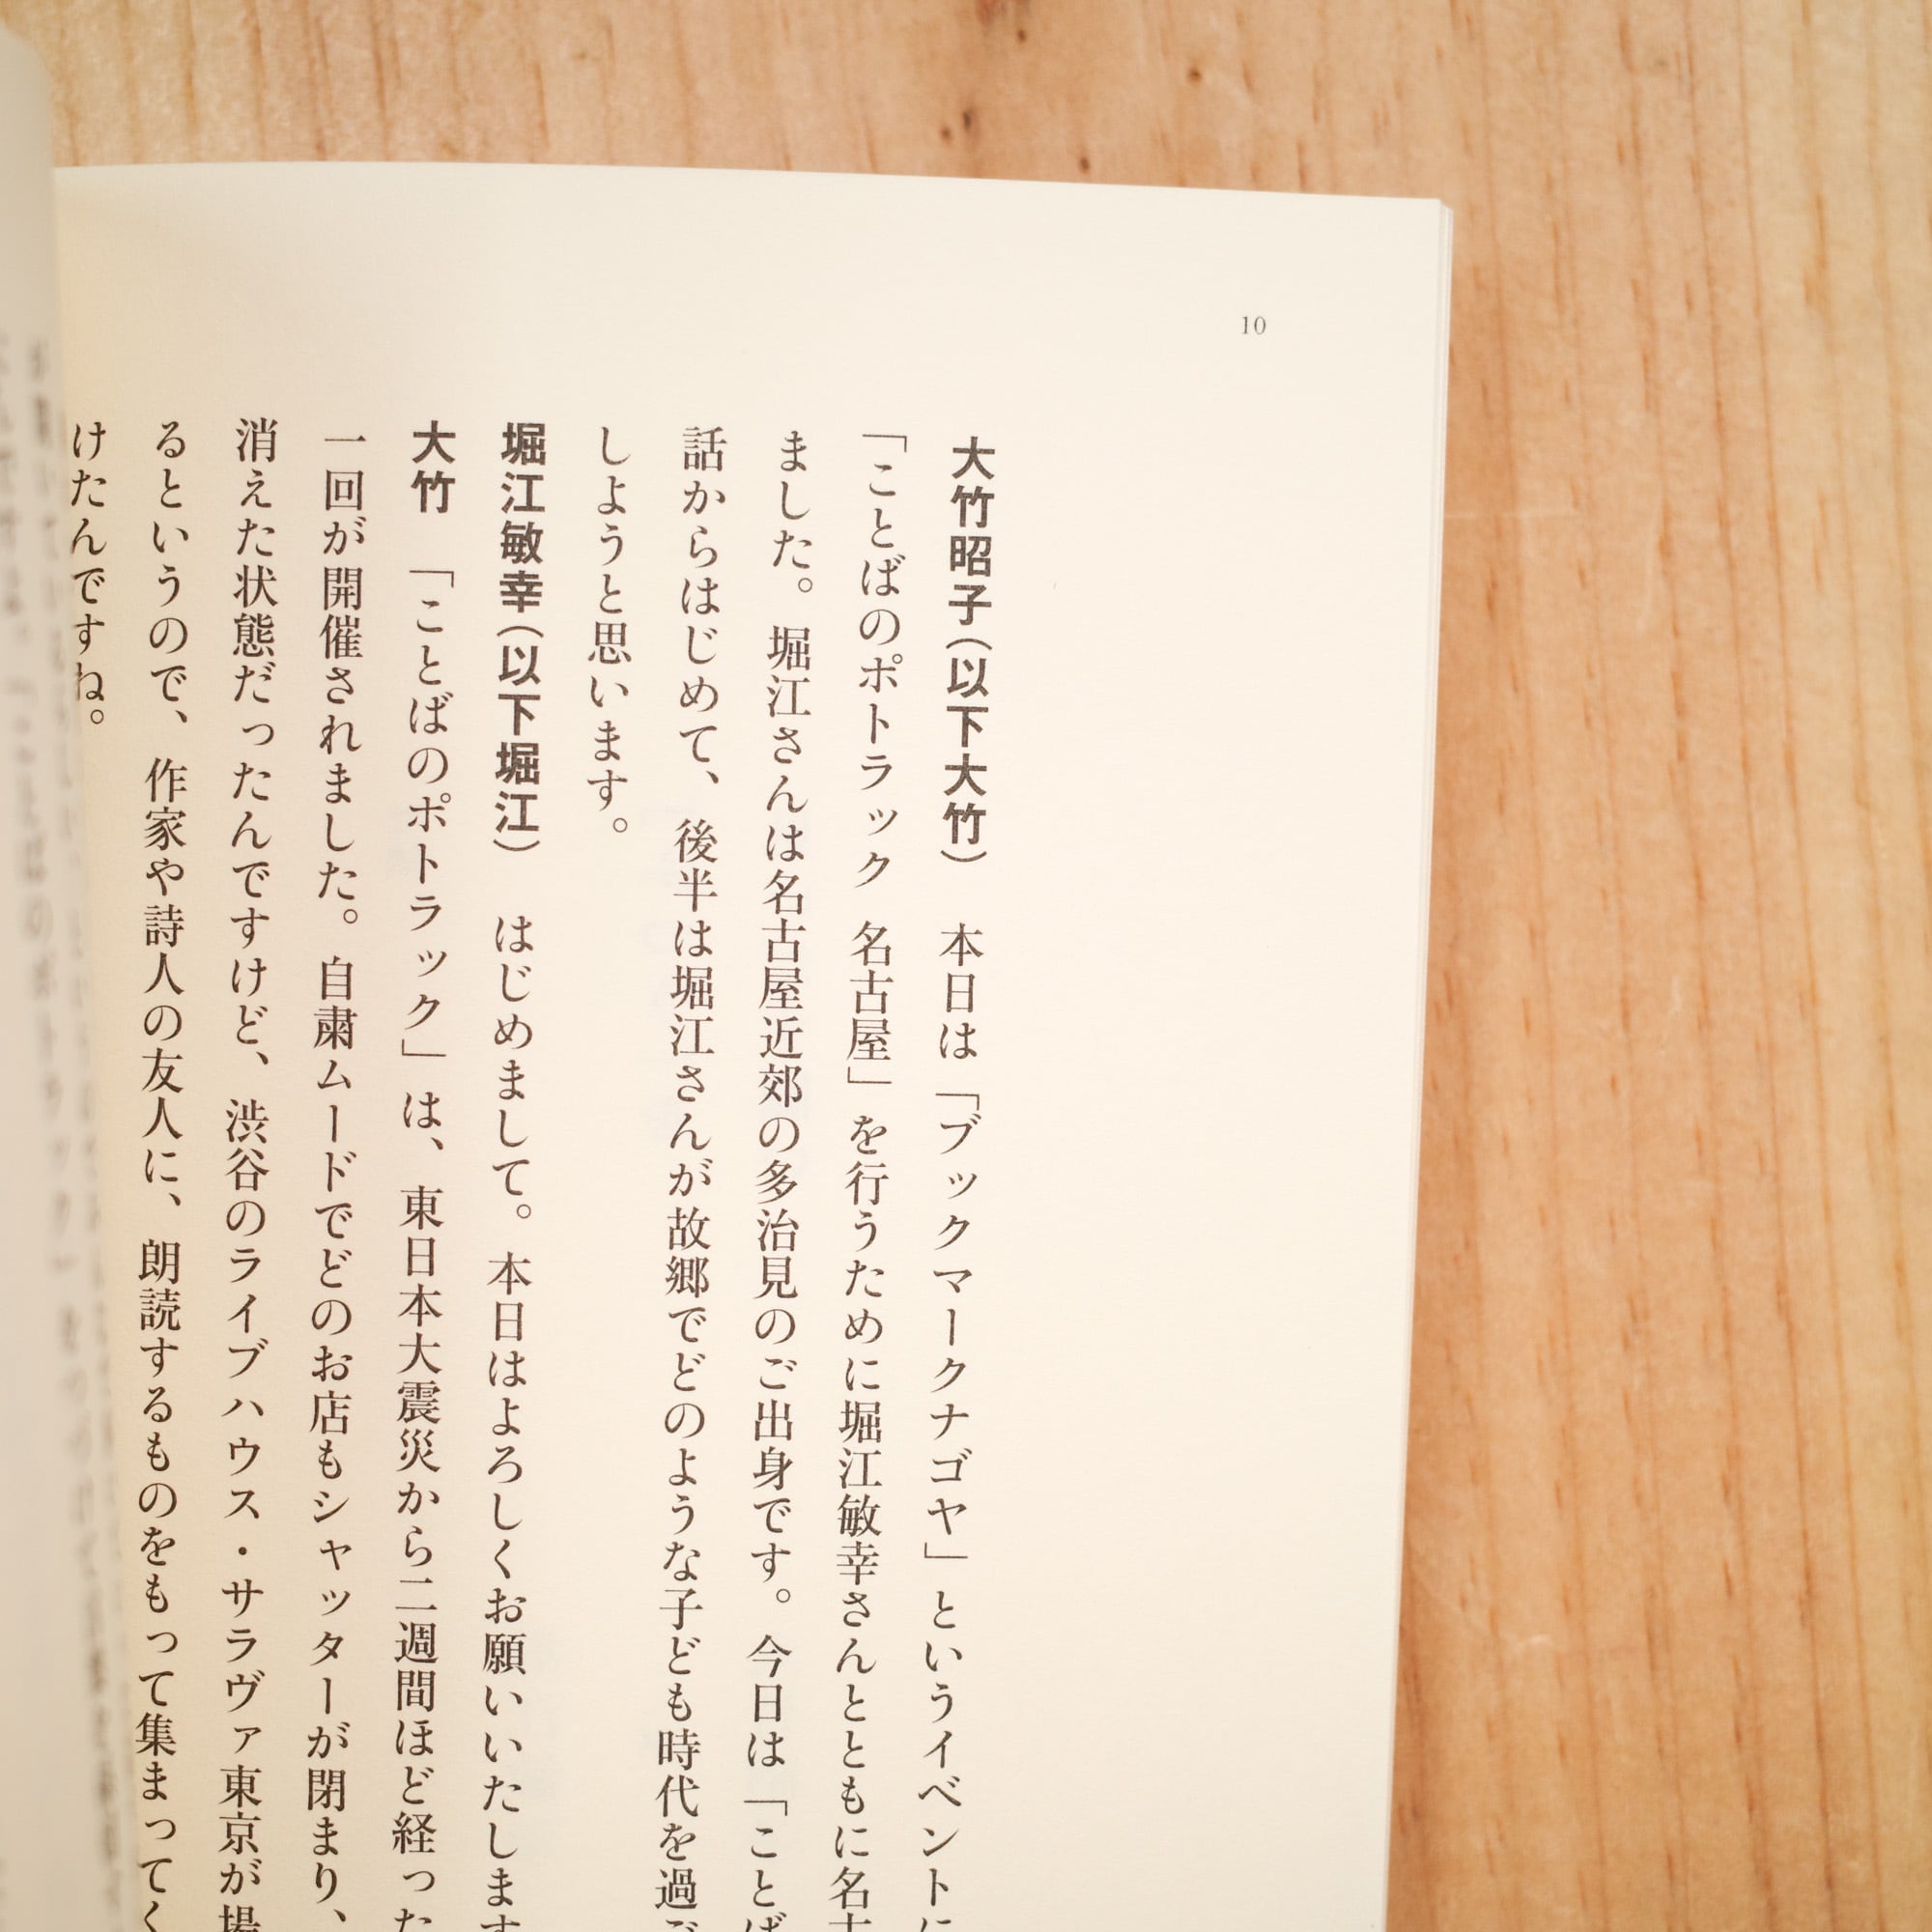 10
大竹昭子（以下大竹）　本日は「ブックマークナゴヤ」というイベントに
「ことばのポトラック　名古屋」を行うために堀江敏幸さんとともに名古
ました。堀江さんは名古屋近郊の多治見のご出身です。今日は「ことば
話からはじめて、後半は堀江さんが故郷でどのような子ども時代を過ご
しようと思います。
堀江敏幸（以下堀江）　はじめまして。本日はよろしくお願いいたします
大竹　「ことばのポトラック」は、東日本大震災から二週間ほど経った
一回が開催されました。自粛ムードでどのお店もシャッターが閉まり、
消えた状態だったんですけど、渋谷のライブハウス・サラヴァ東京が場
るというので、作家や詩人の友人に、朗読するものをもって集まってく
けたんですね。